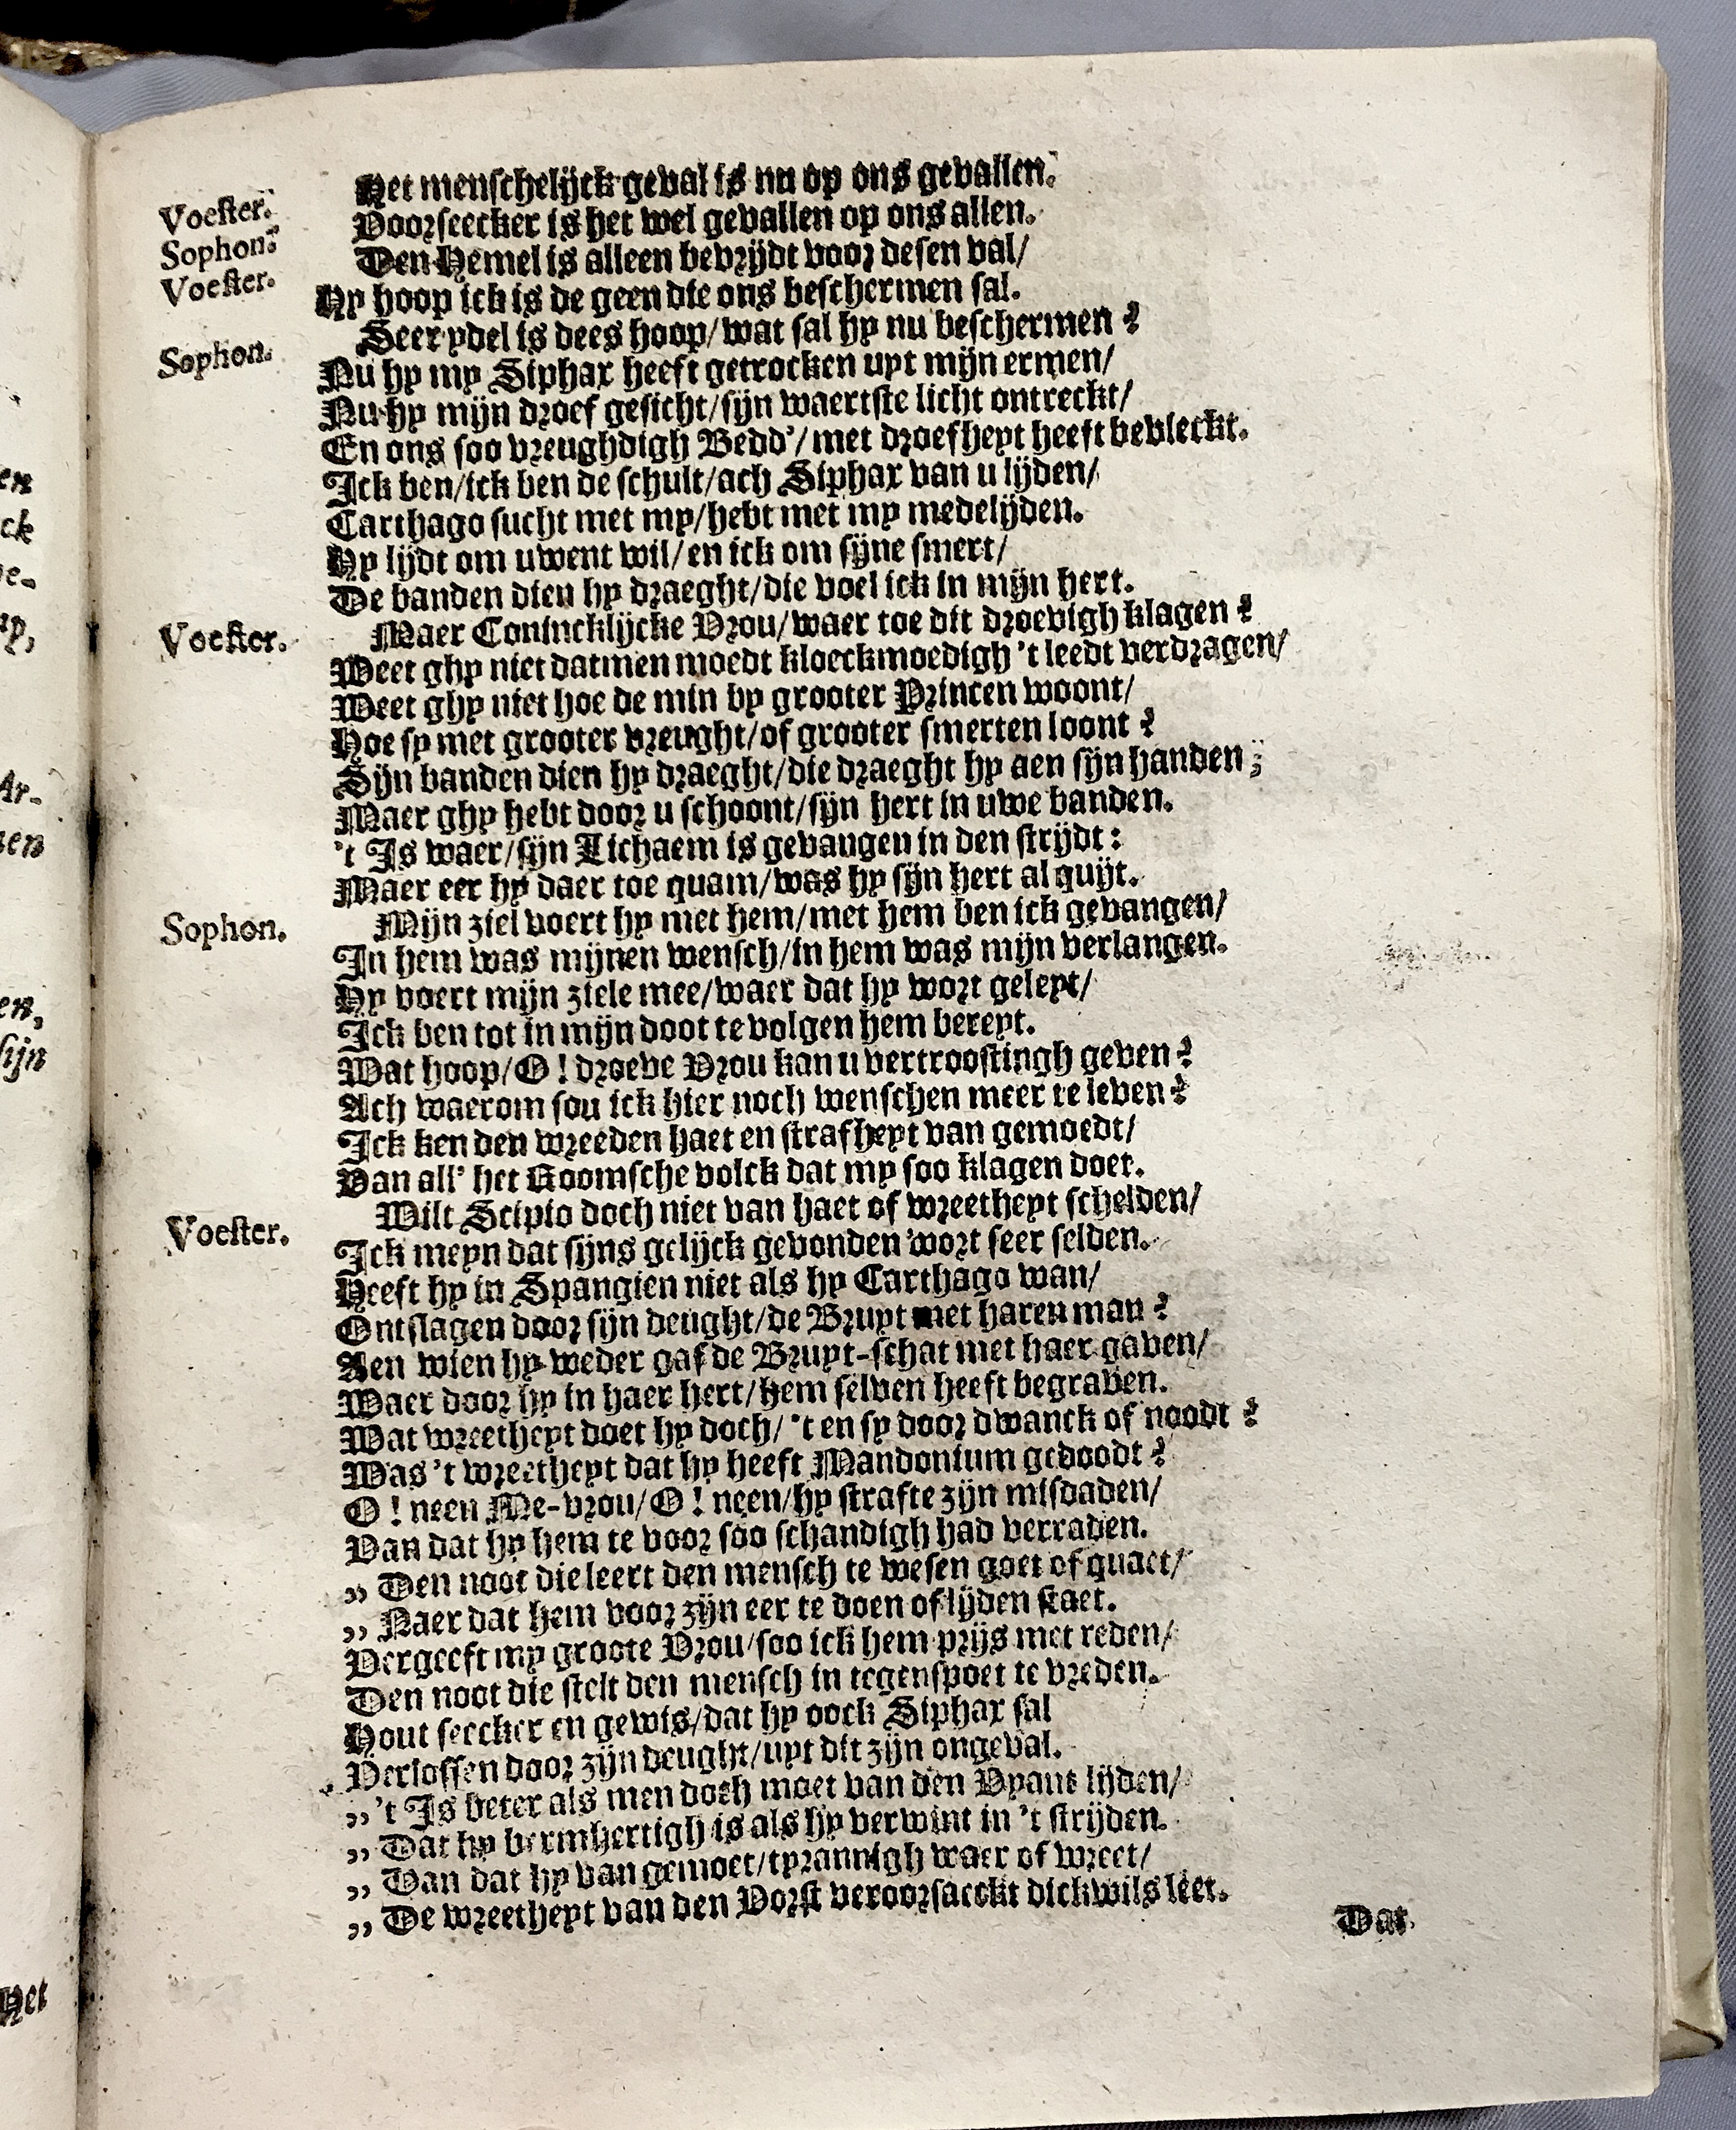 Het menschelijck geval is nu op ons gevallen.
Voester. Voorseecker is het wel gevallen op ons allen.
Sophon. Den Hemel is alleen bevrijdt voor desen val/
Voester. Hy hoop ick is de geen die ons beschermen sal.
Sophon. Seer ydel is dees hoop/wat sal hy nu beschermen?
Nu hy my Siphax heeft getrocken uyt mijn ermen/
Nu hy mijn droef gesicht/sijn waertste licht ontreckt/
En ons soo vreughdigh Bedd'/met droefheyt heeft bevleckt.
Ick ben/ick ben de schult/ach Siphax van u lijden/
Carthago sucht met my/hebt met my medelijden.
Hy lijdt om uwent wil/en ick om sijne smert/
De banden dien hy draeght/die voel ick in mijn hert.
Voester. Maer Conincklijcke Vrou/waer toe dit droevigh klagen?
Weet ghy niet datmen moedt kloeckmoedigh 't leedt verdragen/
Weet ghy niet hoe de min by grooter Princen woont/
Hoe sy met grooter vreught/of grooter smerten loont?
Sijn banden dien hy draeght/die draeght hy aen sijn handen;
Maer ghy hebt door u schoont/sijn hert in uwe banden.
't Is waer/sijn Lichaem is gevangen in den strijdt:
Maer eer hy daer toe quam/was hy sijn hert al quijt.
Sophon. Mijn ziel voert hy met hem/met hem ben ick gevangen/
In hem was mijnen wensch/in hem was mijn verlangen.
Hy voert mijn ziele mee/waer dat hy wort geleyt/
Ick ben tot in mijn doot te volgen hem bereyt.
Wat hoop/O! droeve Vrou kan u vertroostingh geven?
Ach waerom sou ick hier noch wenschen meer te leven?
Ick ken den wreeden haet en strafheyt van gemoedt/
Van all' het Roomsche volck dat my soo klagen doet.
Voester. Wilt Scipio doch niet van haet of wreetheyt schelden/
Ick meyn dat sijns gelijck gevonden wort seer selden.
Heeft hy in Spangien niet als hy Carthago wan/
Ontslagen door sijn deught/de Bruyt met haren man?
Aen wien hy weder gaf de Bruyt-schat met haer gaven/
Waer door hy in haer hert/hem selven heeft begraven.
Wat wreetheyt doet hy doch/'t en sy door dwanck of noodt?
Was 't wreetheyt dat hy heeft Mandonium gedoodt?
O! neen Me-vrou/O! neen/hy strafte zijn misdaden/
Van dat hy hem te voor soo schandigh had verraden.
,, Den noot die leert den mensch te wesen goet of quaet/
,, Naer dat hem voor zijn eer te doen of lijden staet.
Vergeeft my groote Vrou/soo ick hem prijs met reden/
Den noot die stelt den mensch in tegenspoet te vreden.
Hout seecker en gewis/dat hy oock Siphax sal
Verlossen door zijn deught/uyt dit zijn ongeval.
,, 't Is beter als men doch moet van den Vyant lijden/
,, Dat hy bermhertigh is als hy verwint in 't strijden.
,, Dan dat hy van gemoet/tyrannigh waer of wreet/
,, De wreetheyt van den Vorst veroorsaeckt dickwils leet.
Dat